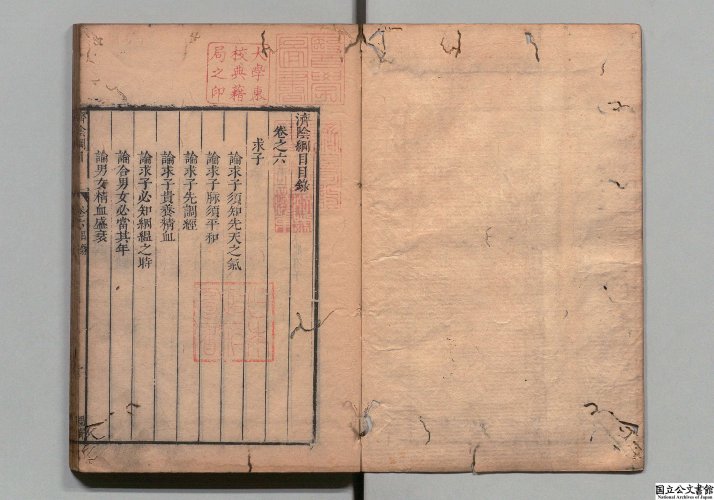 濟陰綱目目錄
卷之六
求子
論求子須知先天之氣
論求子脉須平和
論求子先調經
論求子貴養精血
論求子必知絪縕之時
論合男女必當其年
論男女精血盛衰
大學東
校典籍
局之印
国立公文書館
National Archives of Japan